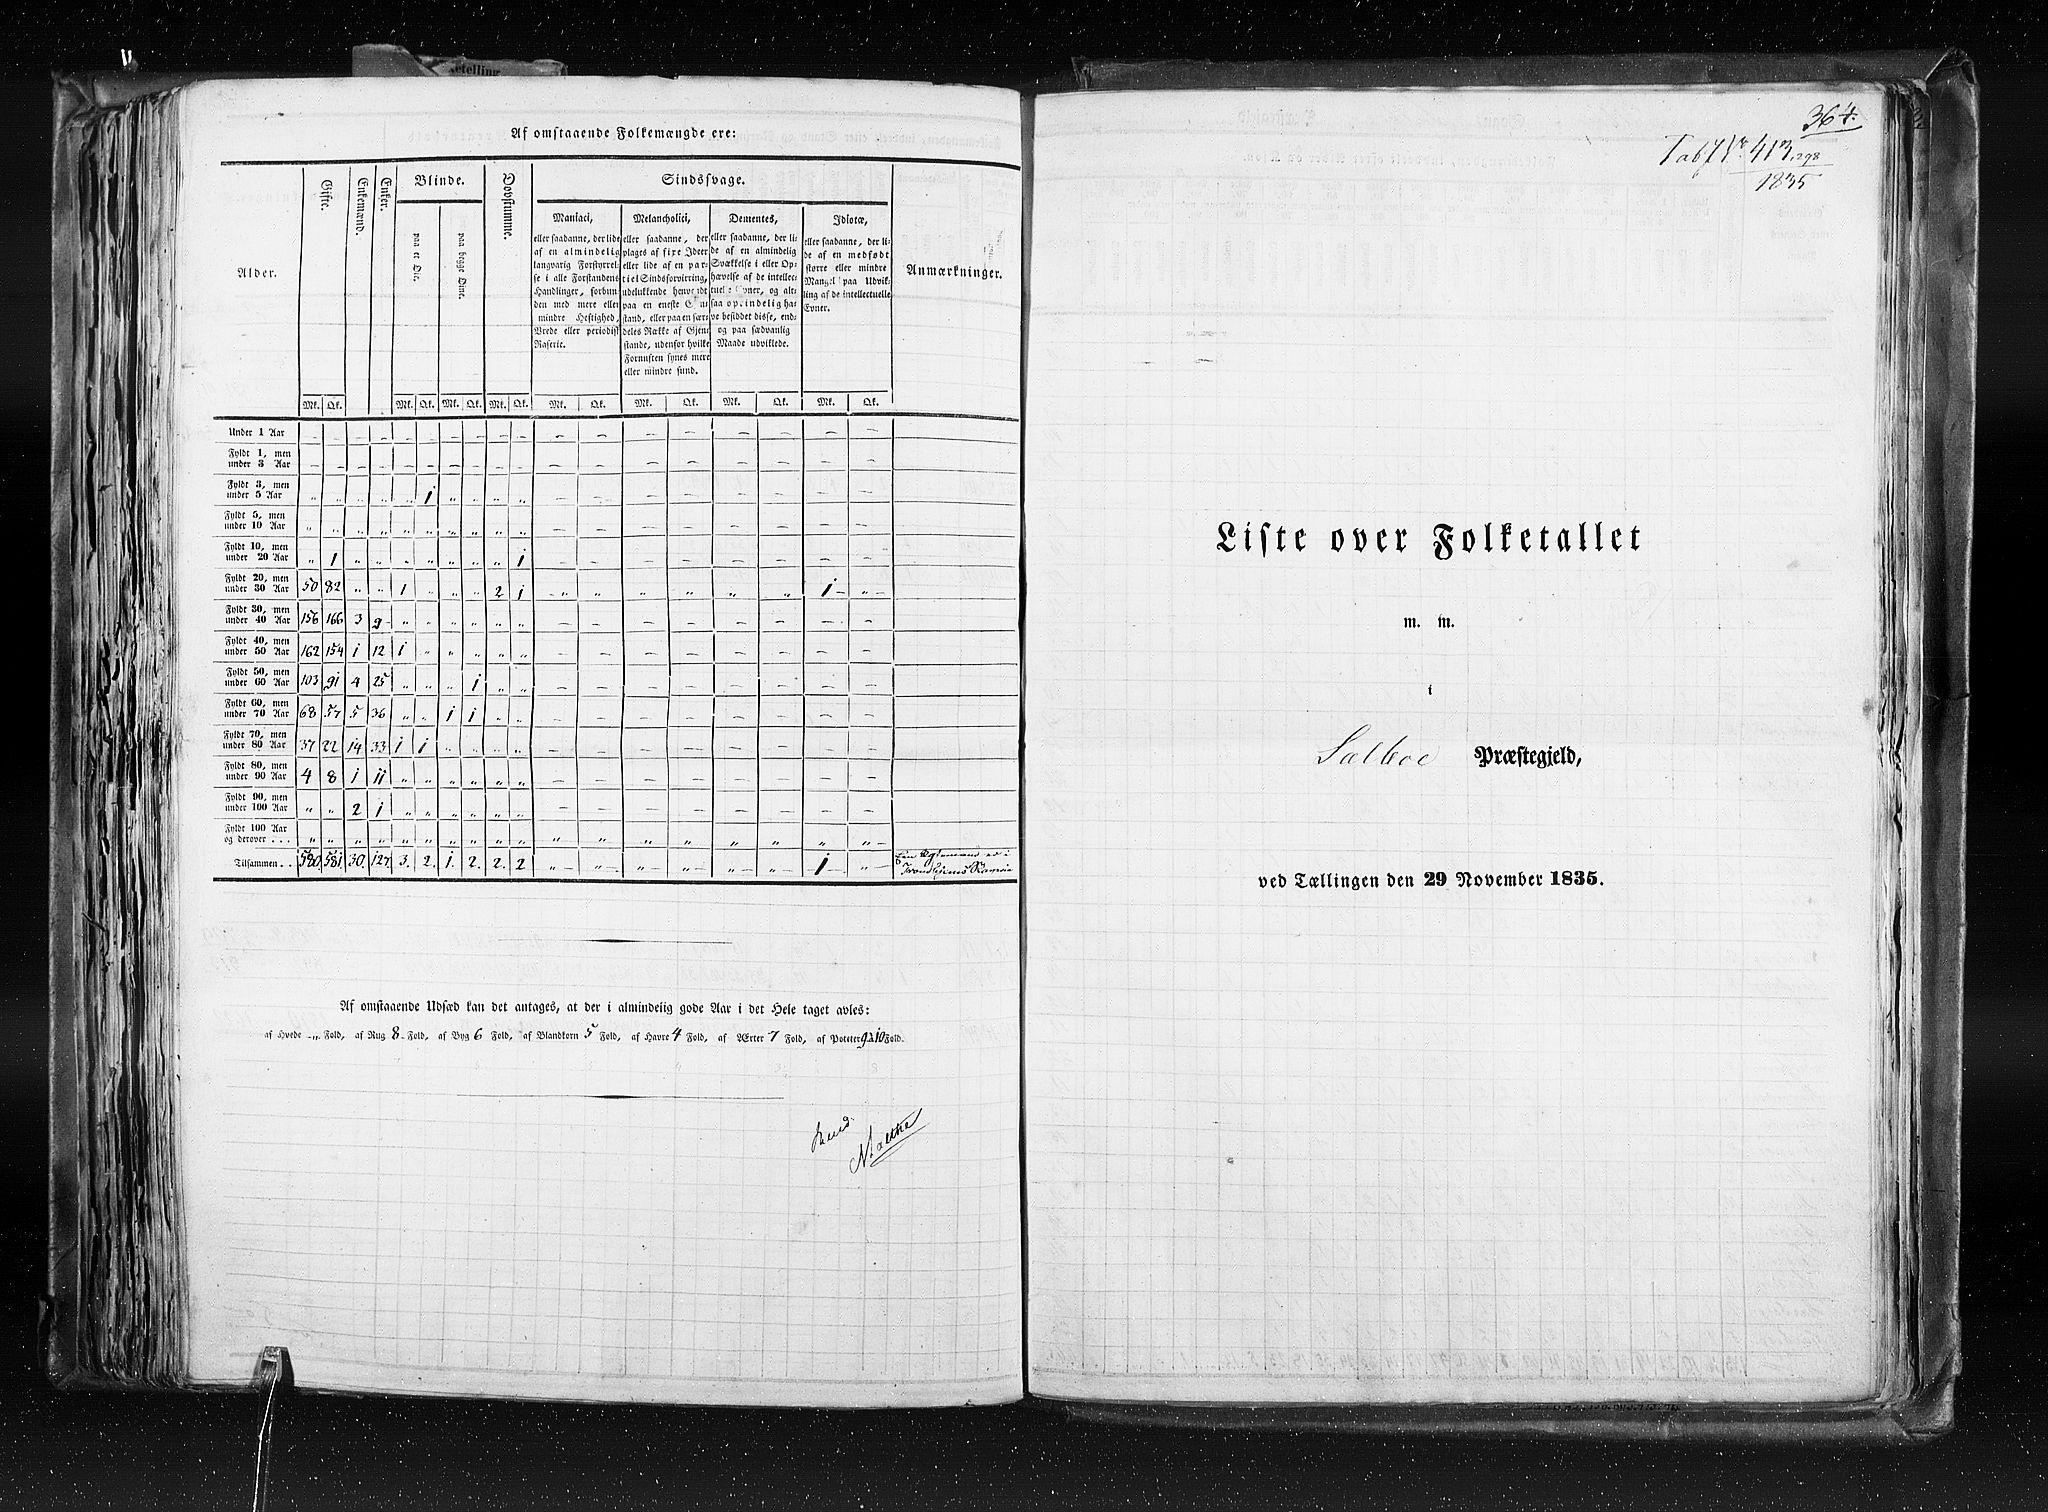 Af omstaaende Folkemængde ere:
Alder. Gifte. Enkemænd. Enker. Blinde. Døvstumme. Sindssvage. Anmærkninger.
paa et Øie. paa begge Øine.
Maniaci, eller saadanne, der lide af en almindelig langvarig Forstyrrelse i alle Forstandens Handlinger, forbunden med mere eller mindre Heftighed, Vrede eller periodisk Raserie.
Melancholici, eller saadanne, der plages af fixe Ideer eller lide af en partiel Sindsforvirring, udelukkende henvendt paa en eneste Gjenstand, eller paa en særdeles Række af Gjenstande, udenfor hvilke Fornuften synes mere eller mindre sund.
Dementes, eller saadanne, der lide af en almindelig Svækkelse i eller Ophævelse af de intellectuelle Evner, og altsaa oprindelig have besiddet disse, endog paa sædvanlig Maade udviklede.
Idiotæ, eller saadanne, der lide af en medfødt større eller mindre Mangel paa Udvikling af de intellectuelle Evner.
Mk. Qk. Mk. Qk. Mk. Qk. Mk. Qk. Mk. Qk. Mk. Qk. Mk. Qk. Mk. Qk.
Under 1 Aar – – – – – – – – – – – – – – – – – –
Fyldt 1, men under 3 Aar – – – – – – – – – – – – – – – – – –
Fyldt 3, men under 5 Aar „ „ „ „ „ 1 „ „ „ „ – – – – – – – –
Fyldt 5, men under 10 Aar „ „ „ „ „ „ „ „ „ „ – – – – – – – –
Fyldt 10, men under 20 Aar „ 1 „ „ „ „ „ „ „ 1 – – – – – – – –
Fyldt 20, men under 30 Aar 50 82 „ „ 1 „ „ „ 2 1 „ „ „ „ „ „ 1 „
Fyldt 30, men under 40 Aar 156 166 3 9 „ „ „ „ „ „ – – – – – – – –
Fyldt 40, men under 50 Aar 162 154 1 12 1 „ „ „ „ „ – – – – – – – –
Fyldt 50, men under 60 Aar 103 91 4 25 „ „ „ 1 „ „ – – – – – – – –
Fyldt 60, men under 70 Aar 68 57 5 36 „ „ 1 1 „ „ – – – – – – – –
Fyldt 70, men under 80 Aar 37 22 14 33 1 1 „ „ „ „ – – – – – – – –
Fyldt 80, men under 90 Aar 4 8 1 11 „ „ „ „ „ „ – – – – – – – –
Fyldt 90, men under 100 Aar „ „ 2 1 „ „ „ „ „ „ – – – – – – – –
Fyldt 100 Aar og derover . . . „ „ „ „ „ „ „ „ „ „ „ „ „ „ „ „ „ „
Tilsammen . . 580. 581. 30. 127. 3. 2. 1. 2. 2. 2 „ „ „ „ „ „ 1 „
Af omstaaende Udsæd kan det antages, at der i almindelig gode Aar i det Hele taget avles:
af Hvede „ Fold, af Rug 8 Fold, af Byg 6 Fold, af Blandkorn 5 Fold, af Havre 4 Fold, af Ærter 7 Fold, af Poteter 9 à 10 Fold.
364.
413
1298
1835
Liste over Folketallet
m. m.
i
Sælboe Præstegjeld,
ved Tællingen den 29 November 1835.